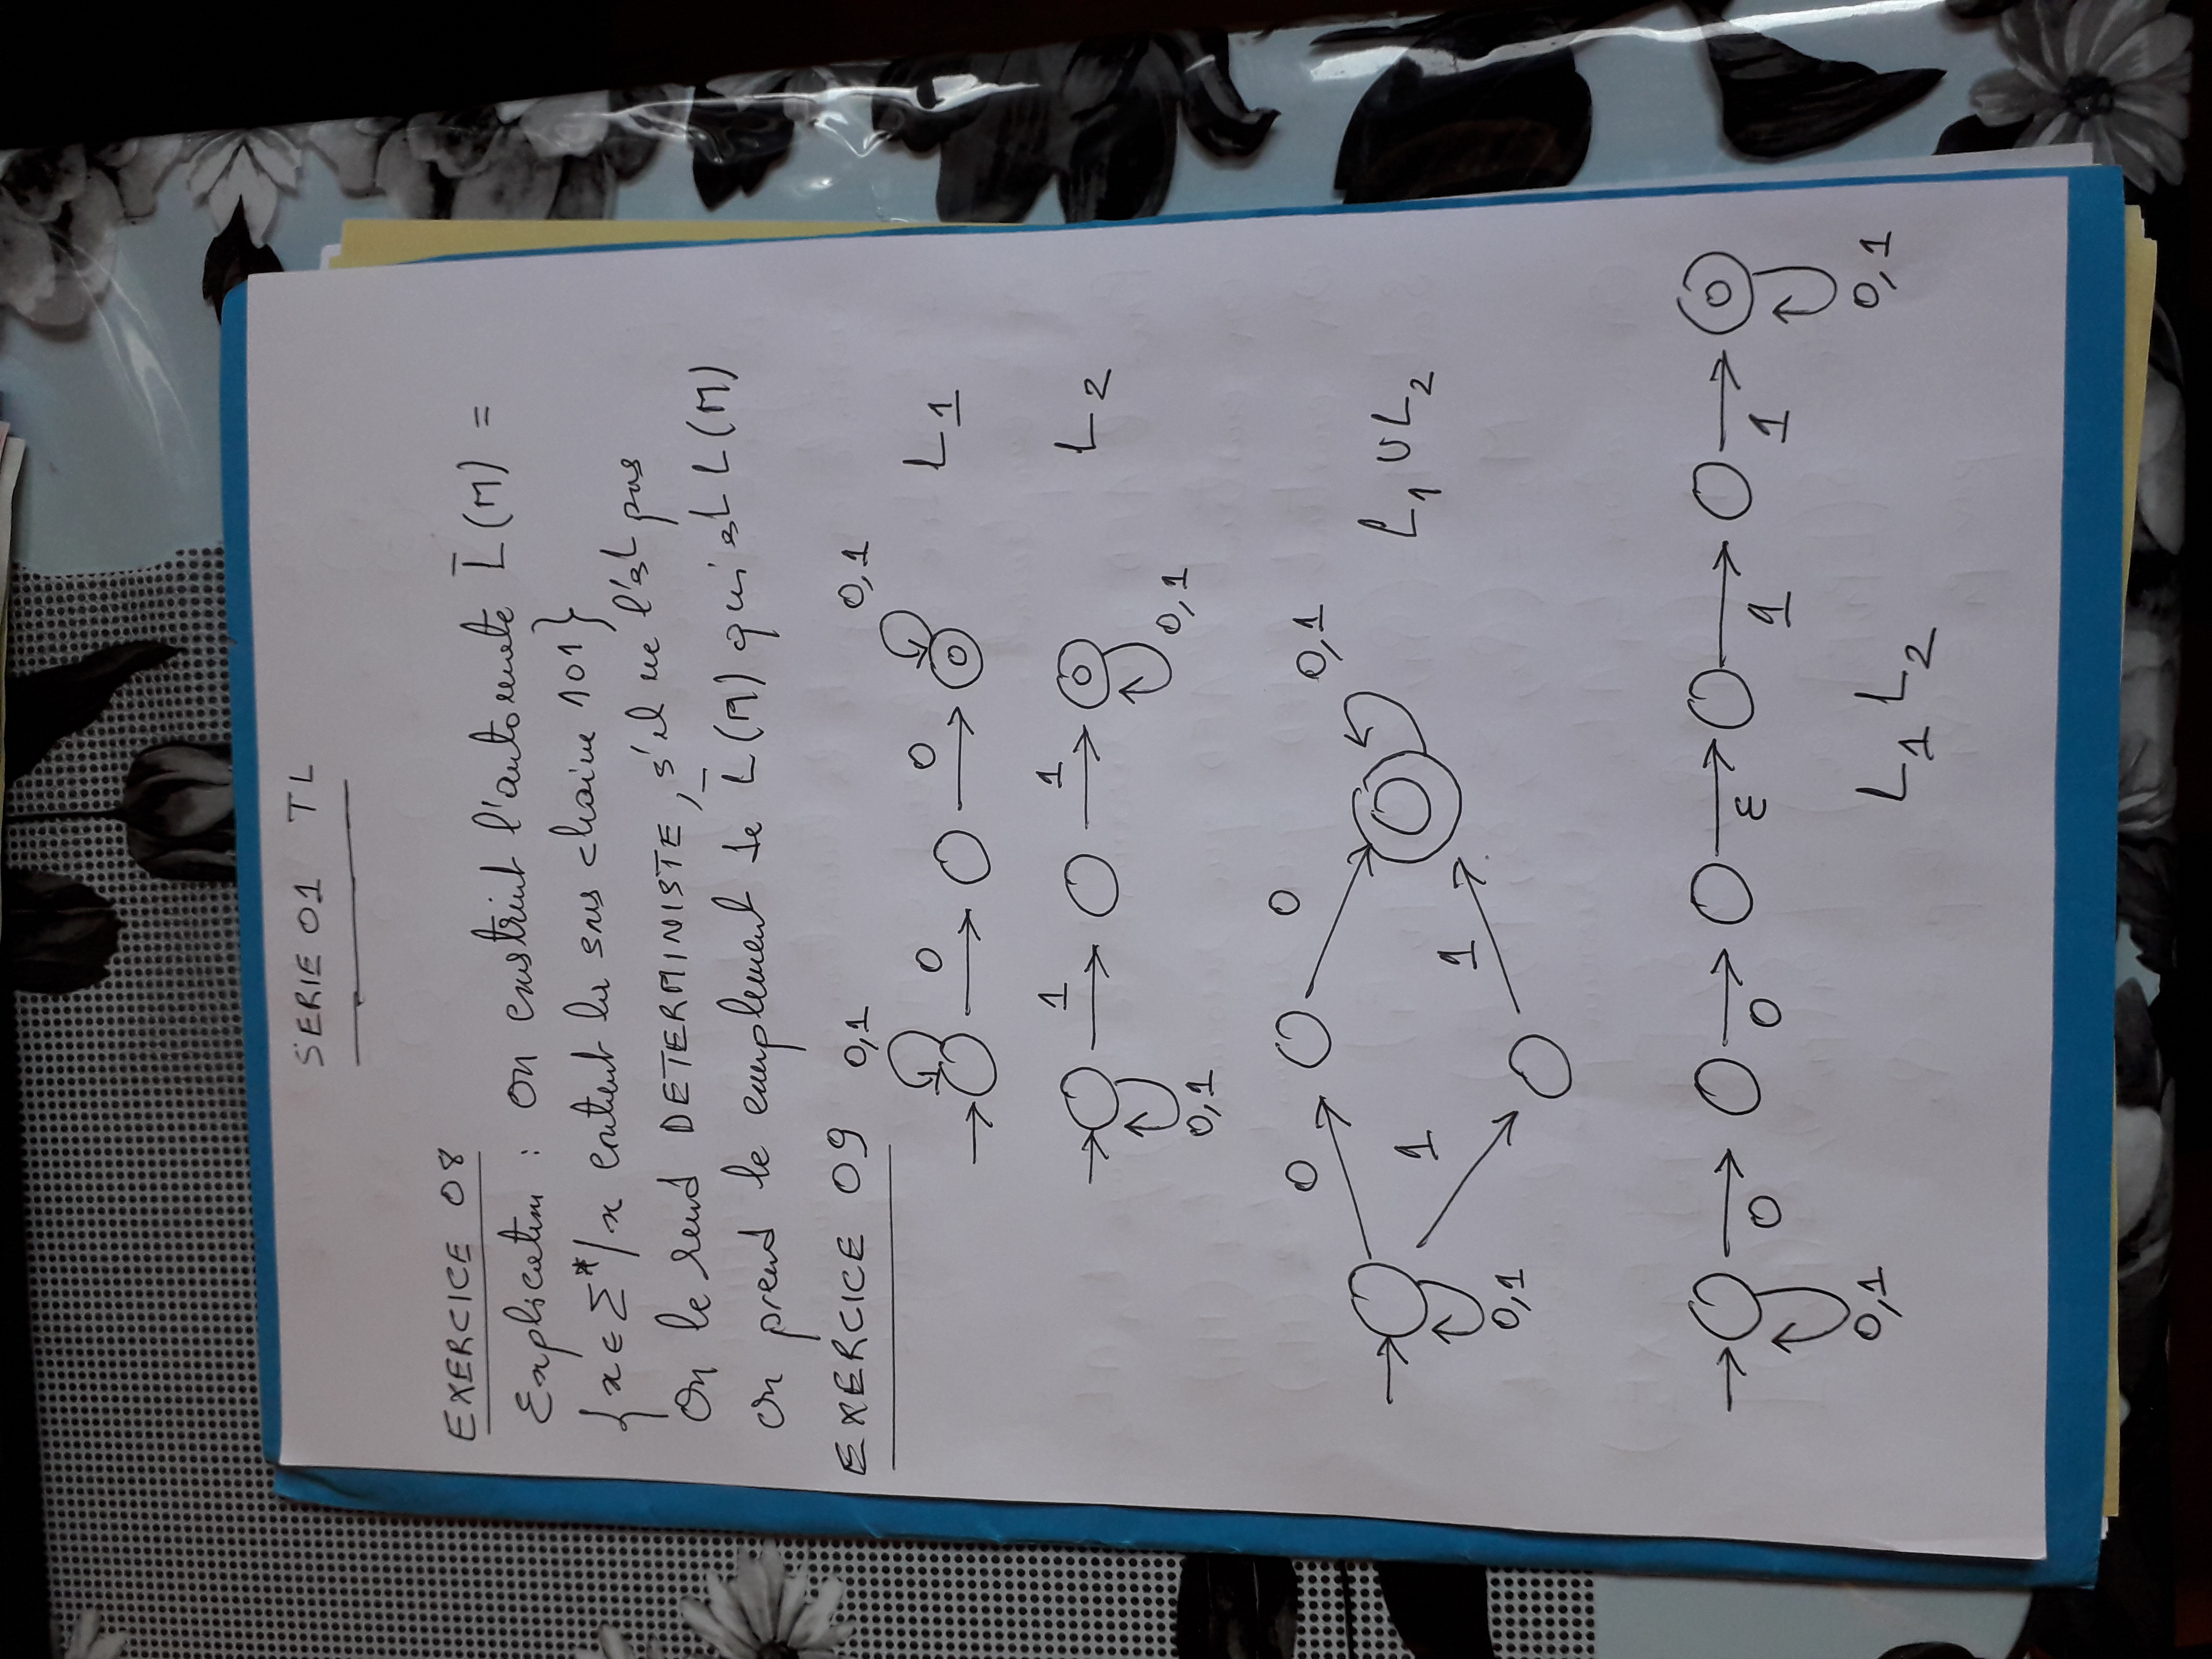 SERIE 01 TL
EXERCICE 08
Explication : On construit l'automate L̄(M) =
{x ∈ Σ*/x contient la sous chaine 101}
On le rend DETERMINISTE, s'il ne l'est pas
On prend le complement de L̄(M) qui est L(M)
EXERCICE 09
0,1 0,1
0 0 L1
1 1 L2
0,1 0,1
0 0 0,1
1 1 L1 ∪ L2
0,1
0 0 ε 1 1
0,1 0,1
L1 L2